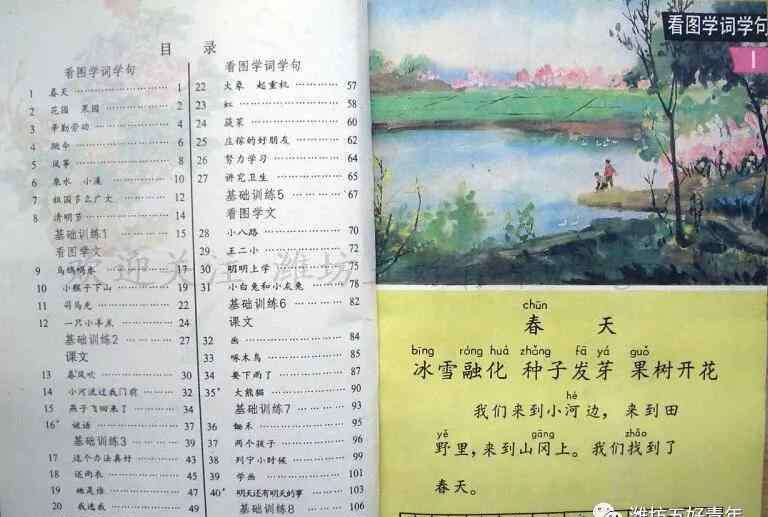 目 录
看图学词学句
1 春天 ………… 1
2 花园 果园 ………… 2
3 辛勤劳动 ………… 4
4 ………… 6
5 风筝 ………… 8
6 泉水 小溪 ………… 10
7 祖国多么广大 ………… 12
8 清明节 ………… 14
基础训练1 ………… 15
看图学文
9 乌鸦喝水 ………… 17
10 小猴子下山 ………… 20
11 司马光 ………… 22
12 一只小羊羔 ………… 24
基础训练2 ………… 27
课文
13 春风吹 ………… 30
14 小河流过我门前 ………… 32
15 燕子飞回来了 ………… 34
16* 谜语 ………… 37
基础训练3 ………… 39
17 这个办法真好 ………… 43
18 送雨衣 ………… 45
19 她是谁 ………… 47
20 我选我 ………… 49
看图学词学句
22 大象 起重机 ………… 57
23 虹 ………… 58
24 蔬菜 ………… 60
25 庄稼的好朋友 ………… 62
26 努力学习 ………… 64
27 讲究卫生 ………… 65
基础训练5 ………… 67
看图学文
28 小八路 ………… 70
29 王二小 ………… 72
30 明明上学 ………… 75
31 小白兔和小灰兔 ………… 78
基础训练6 ………… 82
课文
32 画 ………… 84
33 啄木鸟 ………… 85
34 要下雨了 ………… 87
35* 大熊猫 ………… 90
基础训练7 ………… 93
36 锄禾 ………… 95
37 两个孩子 ………… 96
38 列宁小时候 ………… 99
39 学画 ………… 101
40* 明天还有明天的事 ………… 103
基础训练8 ………… 106
看图学词学句
1
chūn
春 天
bīng róng huà zhǒng fā yá guǒ
冰雪融化 种子发芽 果树开花
hé
我们来到小河边，来到田
yě gāng zhǎo
野里，来到山冈上。我们找到了
春天。
潍坊五好青年